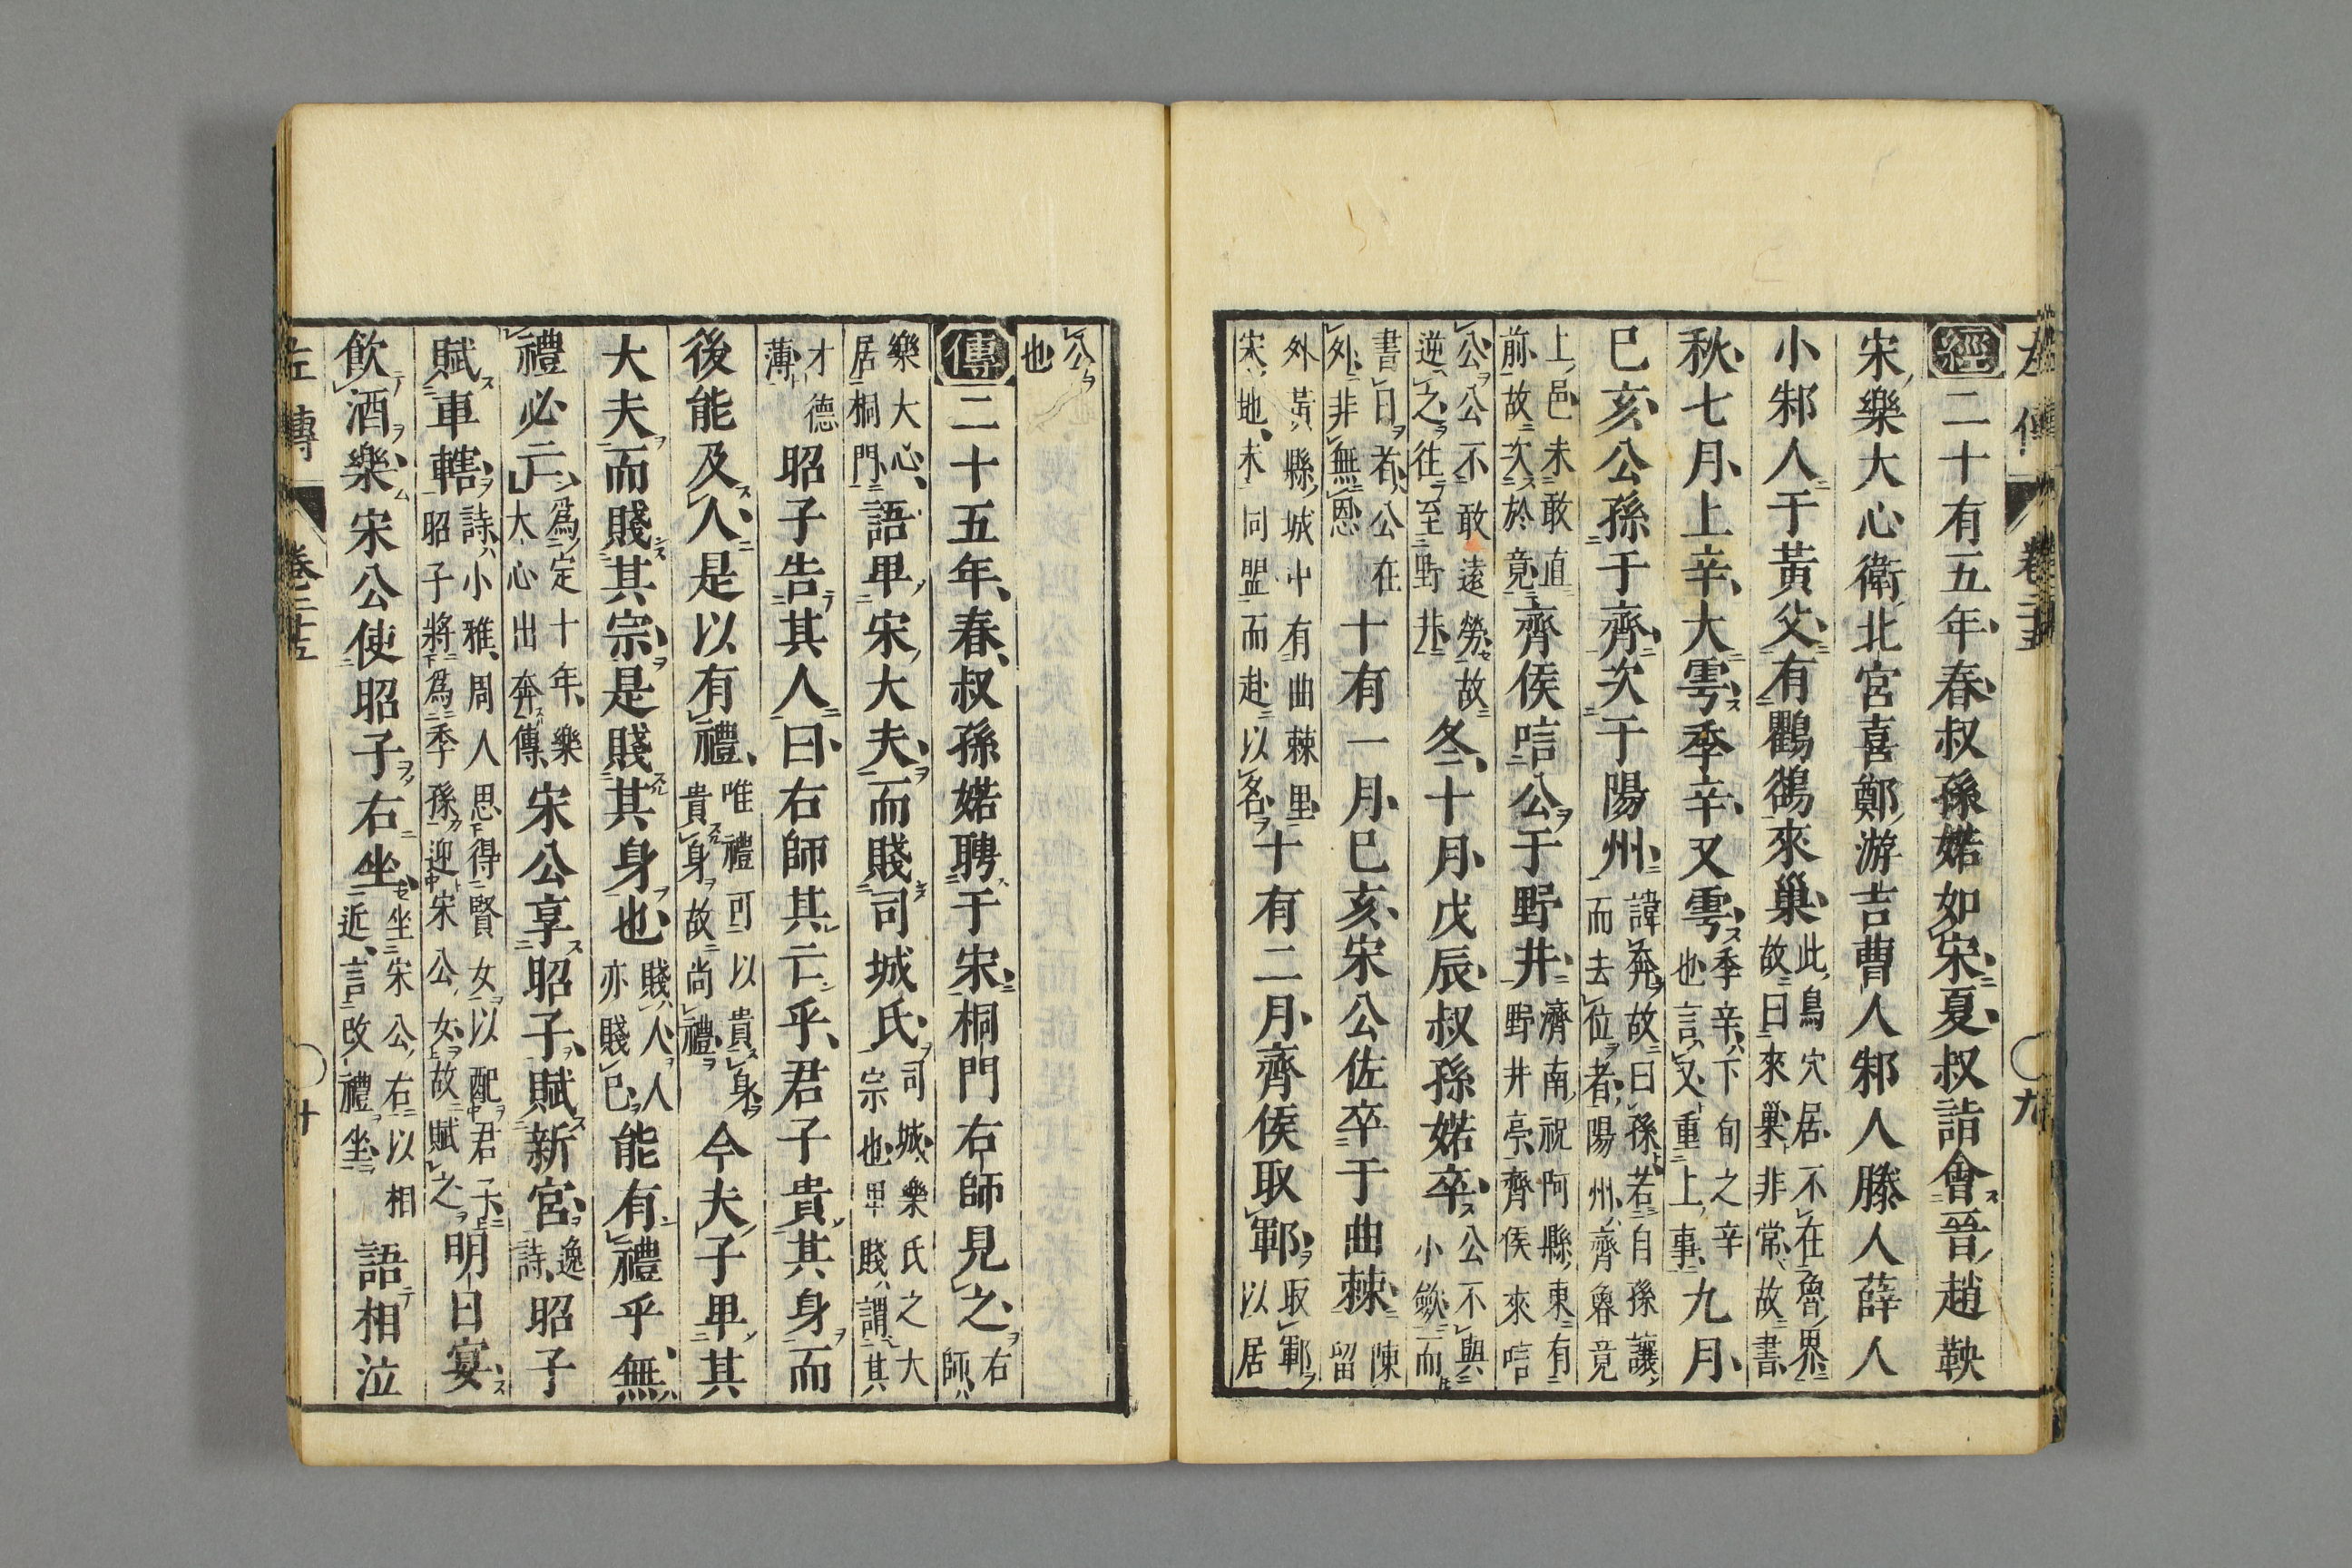 左傳 卷二十五 九
經二十有五年春叔孫婼如宋夏叔詣會晉趙鞅
宋樂大心衛北宮喜鄭游吉曹人邾人滕人薛人
小邾人于黃父有鸜鵒來巢此鳥穴居不在魯界故曰來巢非常故書
秋七月上辛大雩季辛又雩季辛下旬之辛也言又重上事九月
巳亥公孫于齊次于陽州諱奔故曰孫若自孫讓而去位者陽州齊魯竟
上邑未敢直前故次於竟齊侯唁公于野井濟南祝阿縣東有野井亭齊侯來唁
公公不敢遠勞故逆之往至野井冬十月戊辰叔孫婼卒公不與小斂而
書日者公在外非無恩十有一月巳亥宋公佐卒于曲棘陳留
外黃縣城中有曲棘里宋地未同盟而赴以名十有二月齊侯取鄆取鄆以居
公也
傳二十五年春叔孫婼聘于宋桐門右師見之右師
樂大心居桐門語卑宋大夫而賤司城氏司城樂氏之大宗也卑賤謂其
才德薄昭子告其人曰右師其亡乎君子貴其身而
後能及人是以有禮唯禮可以貴身貴身故尚禮今夫子卑其
大夫而賤其宗是賤其身也賤人人亦賤己能有禮乎無
禮必亡爲定十年樂大心出奔傳宋公享昭子賦新宮逸詩昭子
賦車轄詩小雅周人思得賢女以配君子昭子將爲季孫迎宋公女故賦之明日宴
飲酒樂宋公使昭子右坐坐宋公右以相近言改禮坐語相泣
左傳 卷二十五 十